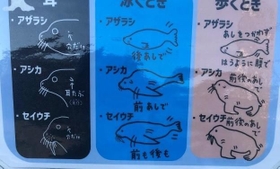 耳
泳ぐとき
歩くとき
・アザラシ
穴だけ
・アシカ
耳たぶ
・セイウチ
穴だけ
・アザラシ
後あしで
・アシカ
前あしで
・セイウチ
前も後も
・アザラシ
あしをつかわず
はうように腹で
・アシカ
前後のあしで
・セイウチ
前後のあしで